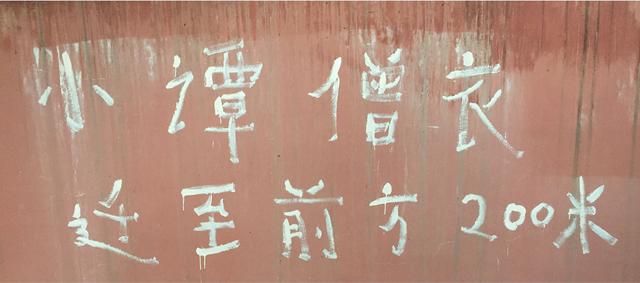 小谭僧衣
迁至前方200米